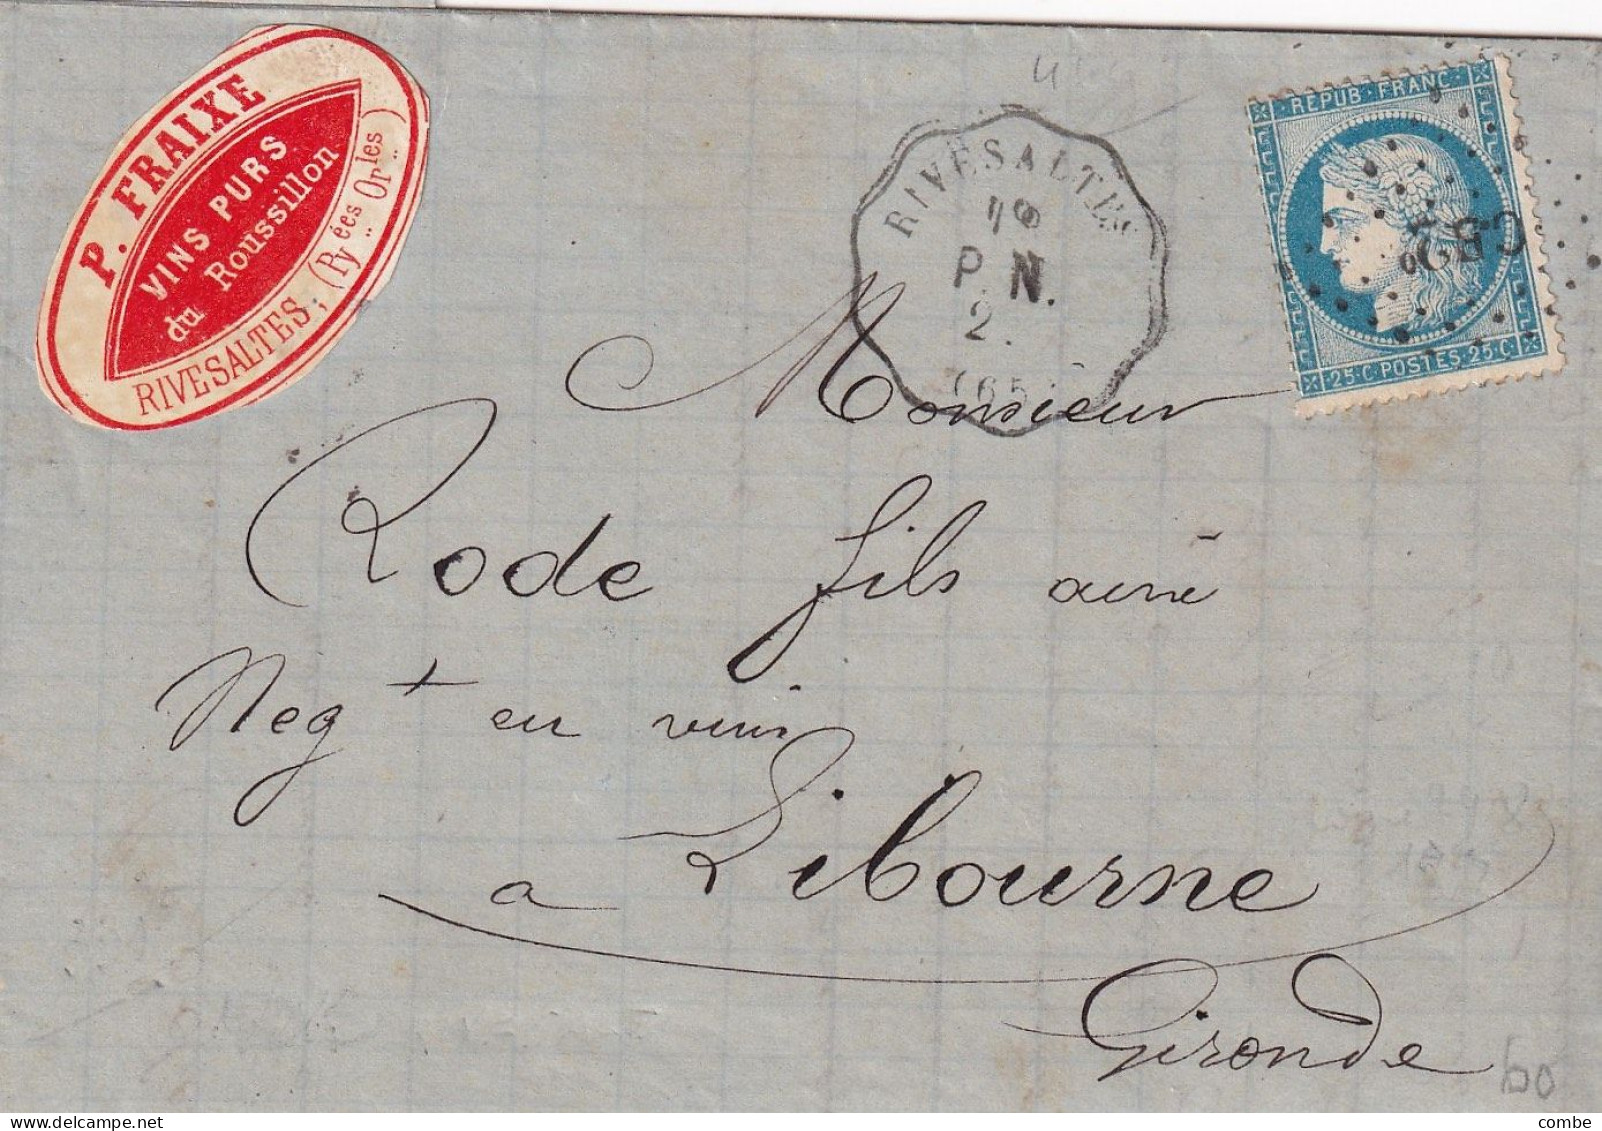 P. FRAIXE
VINS PURS
du Roussillon
RIVESALTES, (Pyées Orles)
RIVESALTES
P. N.
2
(65)
REPUB · FRANC ·
· 25 · C · POSTES · 25 · C ·
Monsieur
Rode fils ainé
Negt en vins
a Libourne
Gironde
60
delcampe.net
combe